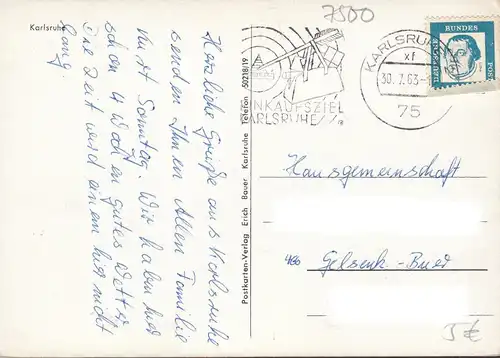 Karlsruhe
Herzliche Grüße aus Karlsruhe
senden Ihnen Allen Familie
Kurt Sonntag. Wir haben hier
schon 4 Wochen gutes Wetter
Die Zeit wird einem hier nicht
lang.
Postkarten-Verlag Erich Bauer Karlsruhe Telefon 50218/19
7500
EINKAUFSZIEL
KARLSRUHE
KARLSRUHE
xf
30.7.63
75
DEUTSCHE
BUNDES
POST
Hausgemeinschaft
466 Gelsenk-Buer
5 €